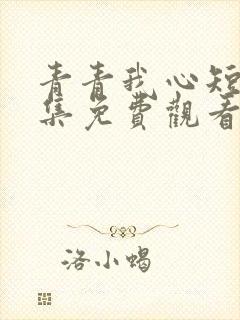 青青我心短
集免費觀看
洛小蝎